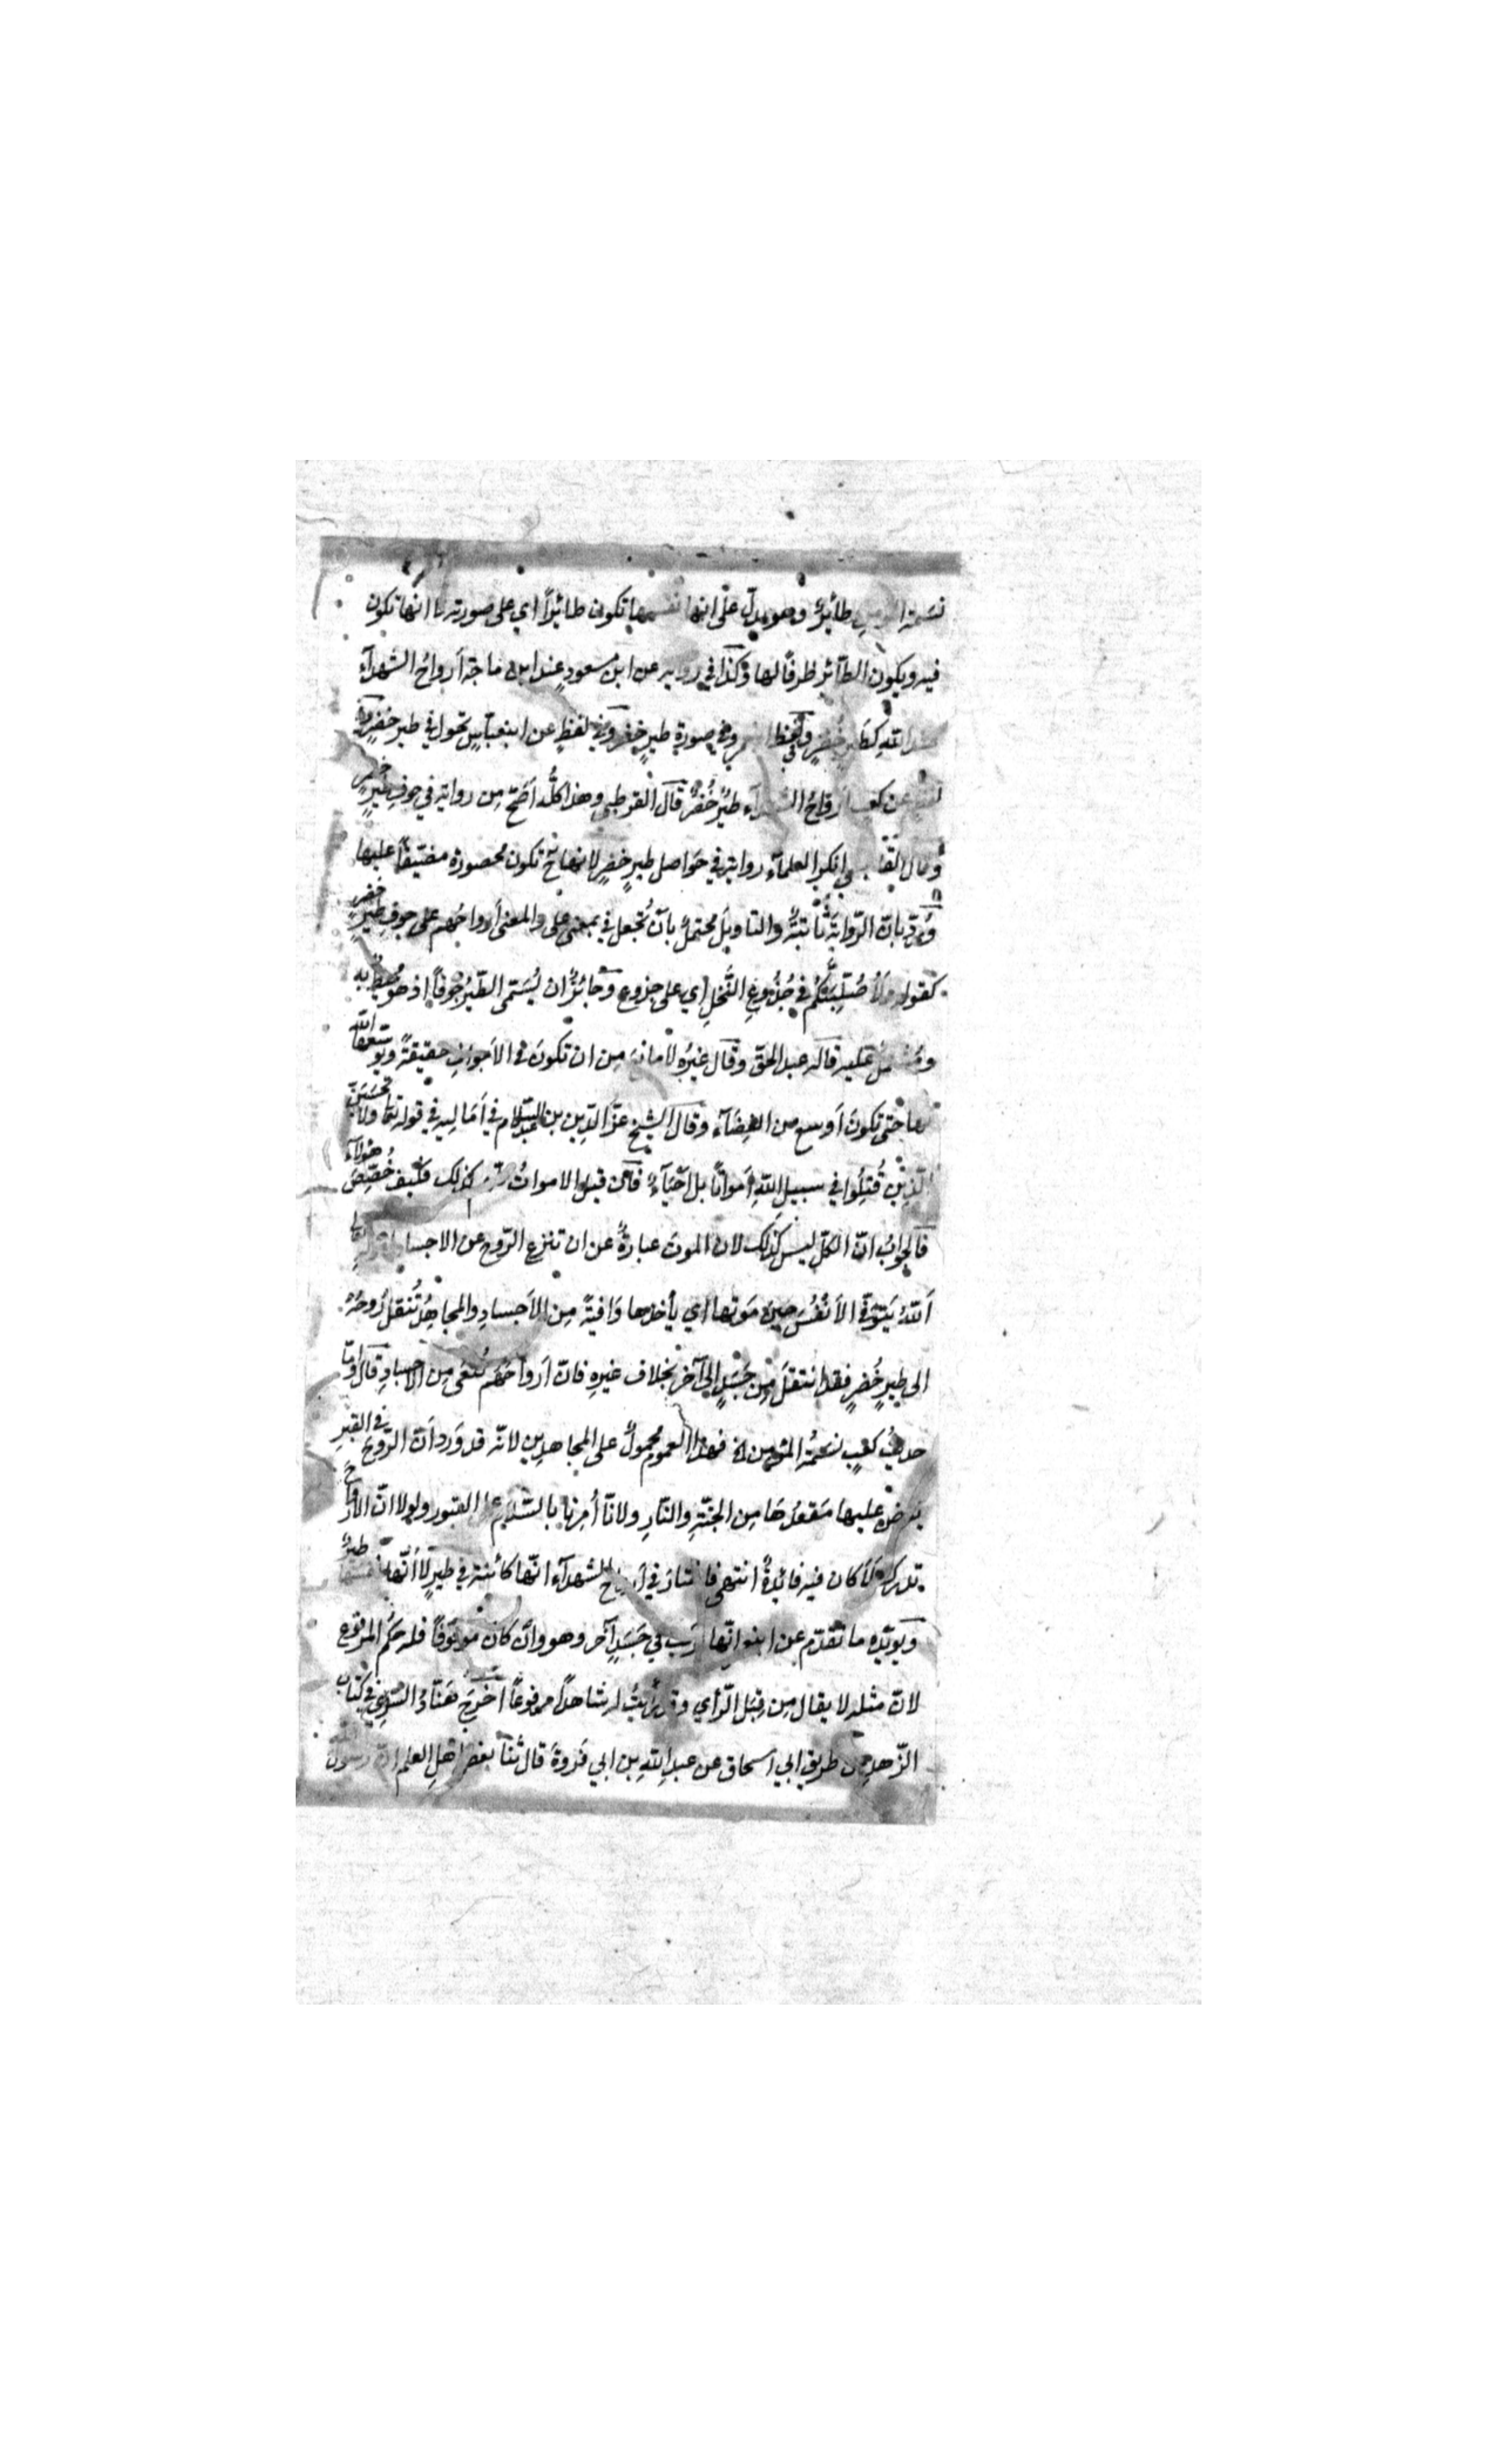 نسمة المؤمن طائرٌ وهو يدلّ على انها نفسها تكون طائرًا اي على صورته لا انها تكون
فيه ويكون الطآئر ظرفًا لها وكذا في رواية عن ابن مسعودٍ عند ابن ماجة أرواحُ الشهدآء
عند اللّهِ كطيرٍ خُضرٍ وفي لفظ وفي صورة طيرٍ خضر وفي لفظٍ عن ابن عبّاسٍ تحول في طيرٍ خضرٍ وفي
لفظٍ عن كعبٍ أرواحُ الشهدآء طيرٌ خُضرٌ قال القرطبي وهذا كلُّه أصَحّ مِن رواية في جوفِ طيرٍ خضرٍ
وقال القابسي انكر العلمآء رواية في حَواصل طيرٍ خضرٍ لانها ح تكون محصورة مضيّقًا عليها
ورُدّ بانّ الرّوايةَ ثابتةٌ والتاويلَ محتملٌ بأنْ تُجعل في بمعنى على والمعنى أرواحُهم على جوفِ طيرٍ خُضرٍ
كقوله ولأصُلّبَنّكُم في جُذُوعِ النَّخلِ اي على جذوع وجائزٌ ان يُسَمّى الطّيرُ جوفًا اذ هو محيطٌ به
ومُشتملٌ عليه قاله عبد الحقّ وقال غيرُه لا مانعَ مِن ان تكونَ في الأجوافِ حقيقةً ويُوسّعها اللّه
لها حتى تكونَ أوسع من الفضآء وقال الشيخ عزّ الدِّين بن عبد السّلام في أمَاليه في قوله تعا ولا تحسبنّ
الّذِينَ قُتِلُوا في سبيلِ اللّهِ أمواتًا بل احيآءٌ فان قيل الامواتُ كلّهم كذلك فكيف خُصِّصَ هؤلآء
فالجوابُ انّ الكلّ ليس كذلك لان الموتَ عبارةٌ عن ان تنزع الرّوح عن الاجساد لقوله تعالى
أللّهُ يَتَوَفّى الأنفُسَ حِينَ مَوتها اي يأخذها وَافيةً مِن الأجسادِ والمجاهدُ تُنقَلُ رُوحُهُ
الى طيرٍ خُضرٍ فقد انتقلَ مِن جَسَدٍ إلى آخرَ بخلاف غيرِه فانّ أرواحَهُم تُنفى مِن الأجسادِ قال وامّا
حديثُ كعبٍ نسَمَةُ المؤمِنِ الخ فهذا العموم محمولٌ على المجاهدين لانّه قد وَرد أنّ الرّوح في القبرِ
يعرض عليها مَقعدُهَا مِن الجنّةِ والنّارِ ولأنّا أُمِرنا بالسّلامِ على القبور ولولا انّ الأرواحَ
تدرك لَمَا كان فيه فائِدةٌ انتهى فاختار في أرواح الشهدآء انّها كائنة في طيرٍ لا أنّها نفسَها طيرٌ
ويؤيّده ما تقدّم عن ابن انّها تركب في جَسَدٍ آخر وهو وان كان موقوفًا فله حكم المرفوع
لانّ مثله لا يقال مِن قِبَل الرّأي وقد رأيتُ له شاهدًا مرفوعًا أخرج هَنّاد السّري في كتاب
الزّهد من طريق ابي اسحاق عن عبد اللّهِ بن ابي فَروةَ قال ثنا بعض اهلِ العلم انّ رسول الله